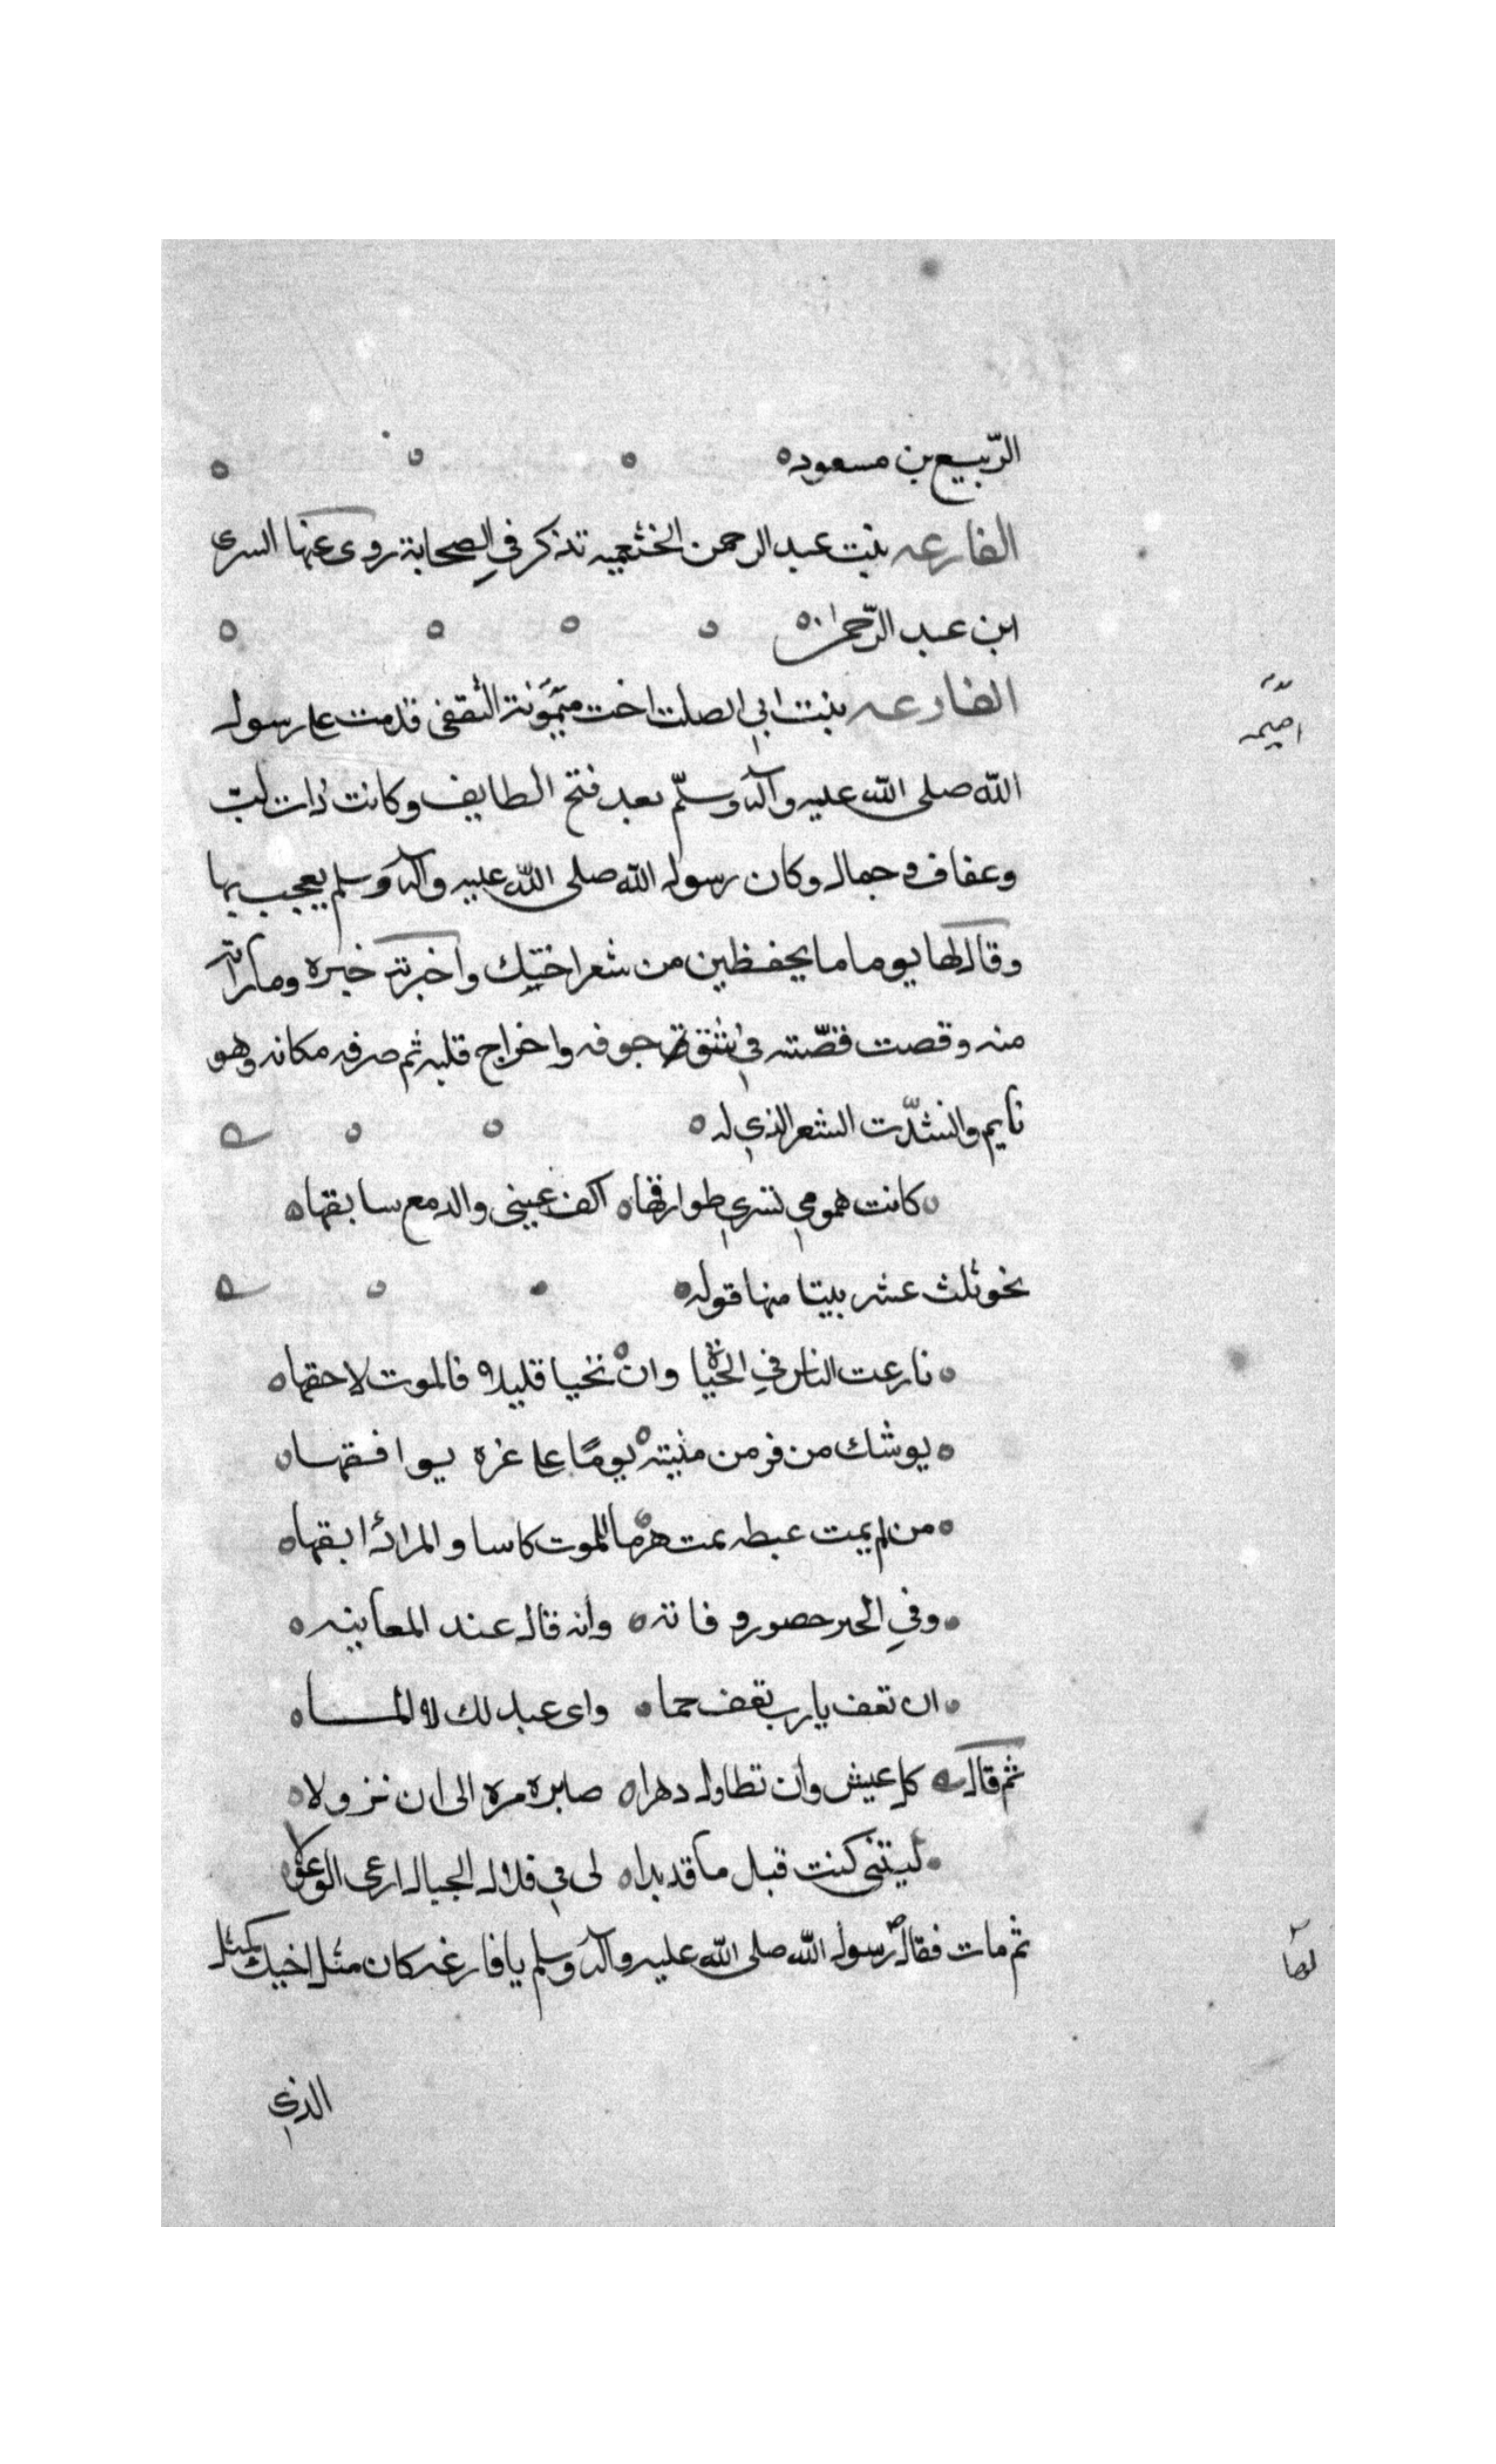 الرّبيع بن مسعود ه
الفارعه بنت عبد الرحمن الخثعميه تذكر في الصحابة روى عنها السرى
ابن عبد الرّحمن ه
الفارعه بنت ابي الصلت اخت ميمونة الثقفى قدمت على رسول
اميه
الله صلى الله عليه وآله وسلّم بعد فتح الطايف وكانت ذات لبّ
وعفاف وجمال وكان رسول الله صلى الله عليه وآله وسلم يعجب بها
وقال لها يوما ما يحفظين من شعر اختيك واخبرته خبره وما رأته
منه وقصت قصّته في شق جوفه واخراج قلبه ثم صرفه مكانه وهو
نايم وانشدّت الشعر الذي له ه
كانت همومي تسري طوارقها ه اكف عيني والدمع سابقها ه
نحو ثلث عشر بيتا منها قوله
نارعت الناس في وان نحيا قليلا ه فالموت لاحقها ه
يوشك من فر من منيته ه يومًا على غره يوافقها ه
من لم يمت عبطه يمت هرما ه للموت كاسا والمرا ذابقها ه
وفي الخبر حصور وفاته ه وانه قال عند المعاينه ه
ان تغف يارب تغف حما ه واى عبد لك لا المـــاه
ثم قال كل عيش وان تطاول دهرا ه صابره مره الى ان نزولا ه
ليتنى كنت قبل ما قد بدا ه لى في قلال الجبال ارعى الوعولا
ثم مات فقال رسول الله صلى الله عليه وآله وسلم يا فارغه كان مثل اخيك كمثل
لها
الذي